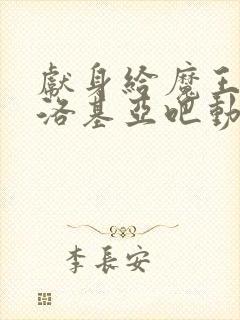 獻身給魔王
洛基亞吧動
李長安